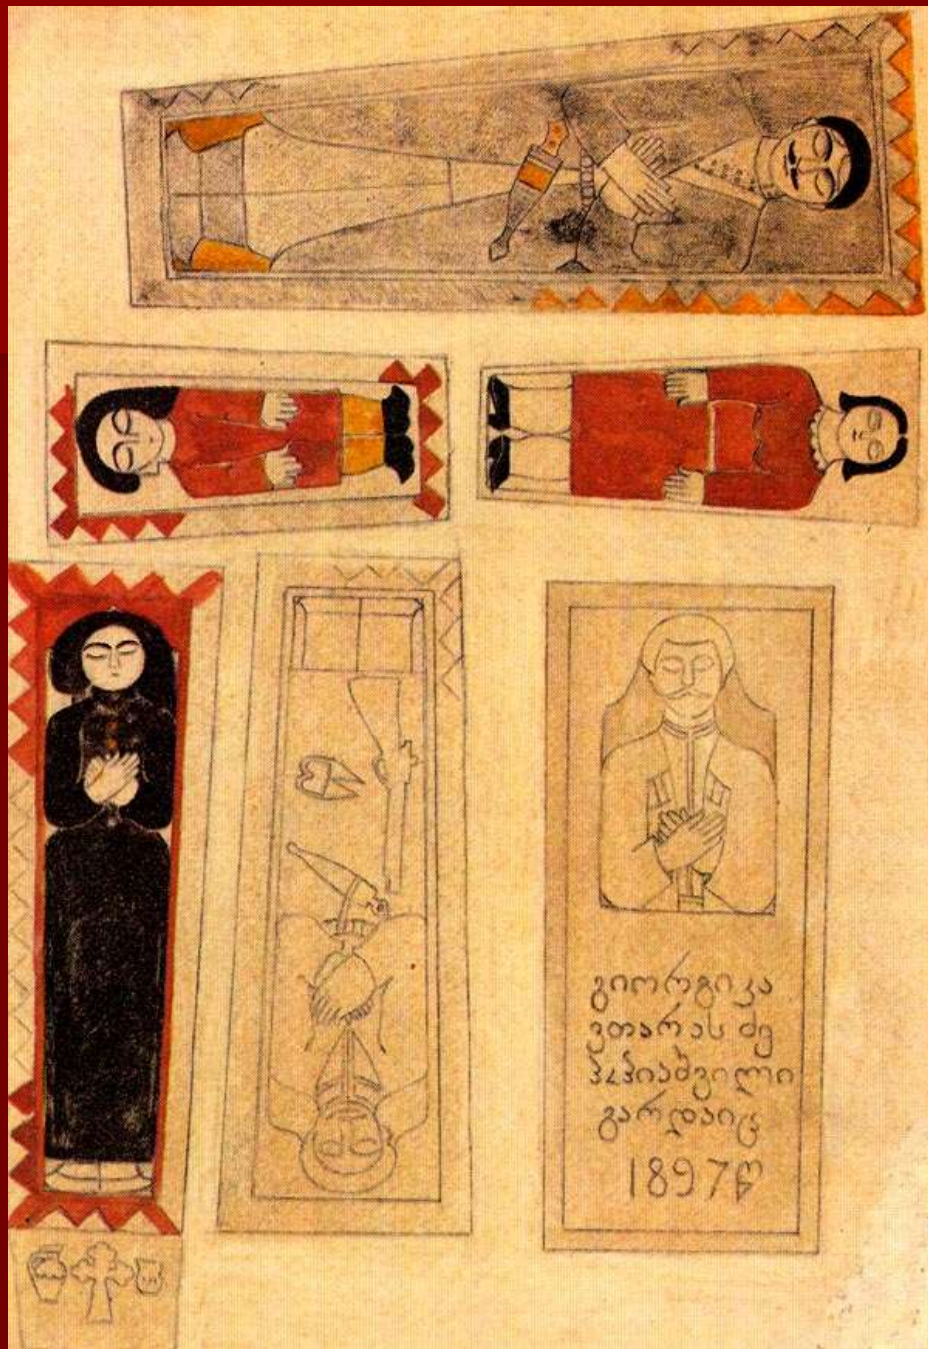 გიორგიკა
ოთარას ძე
პაპიაშვილი
გარდაიც
1897წ